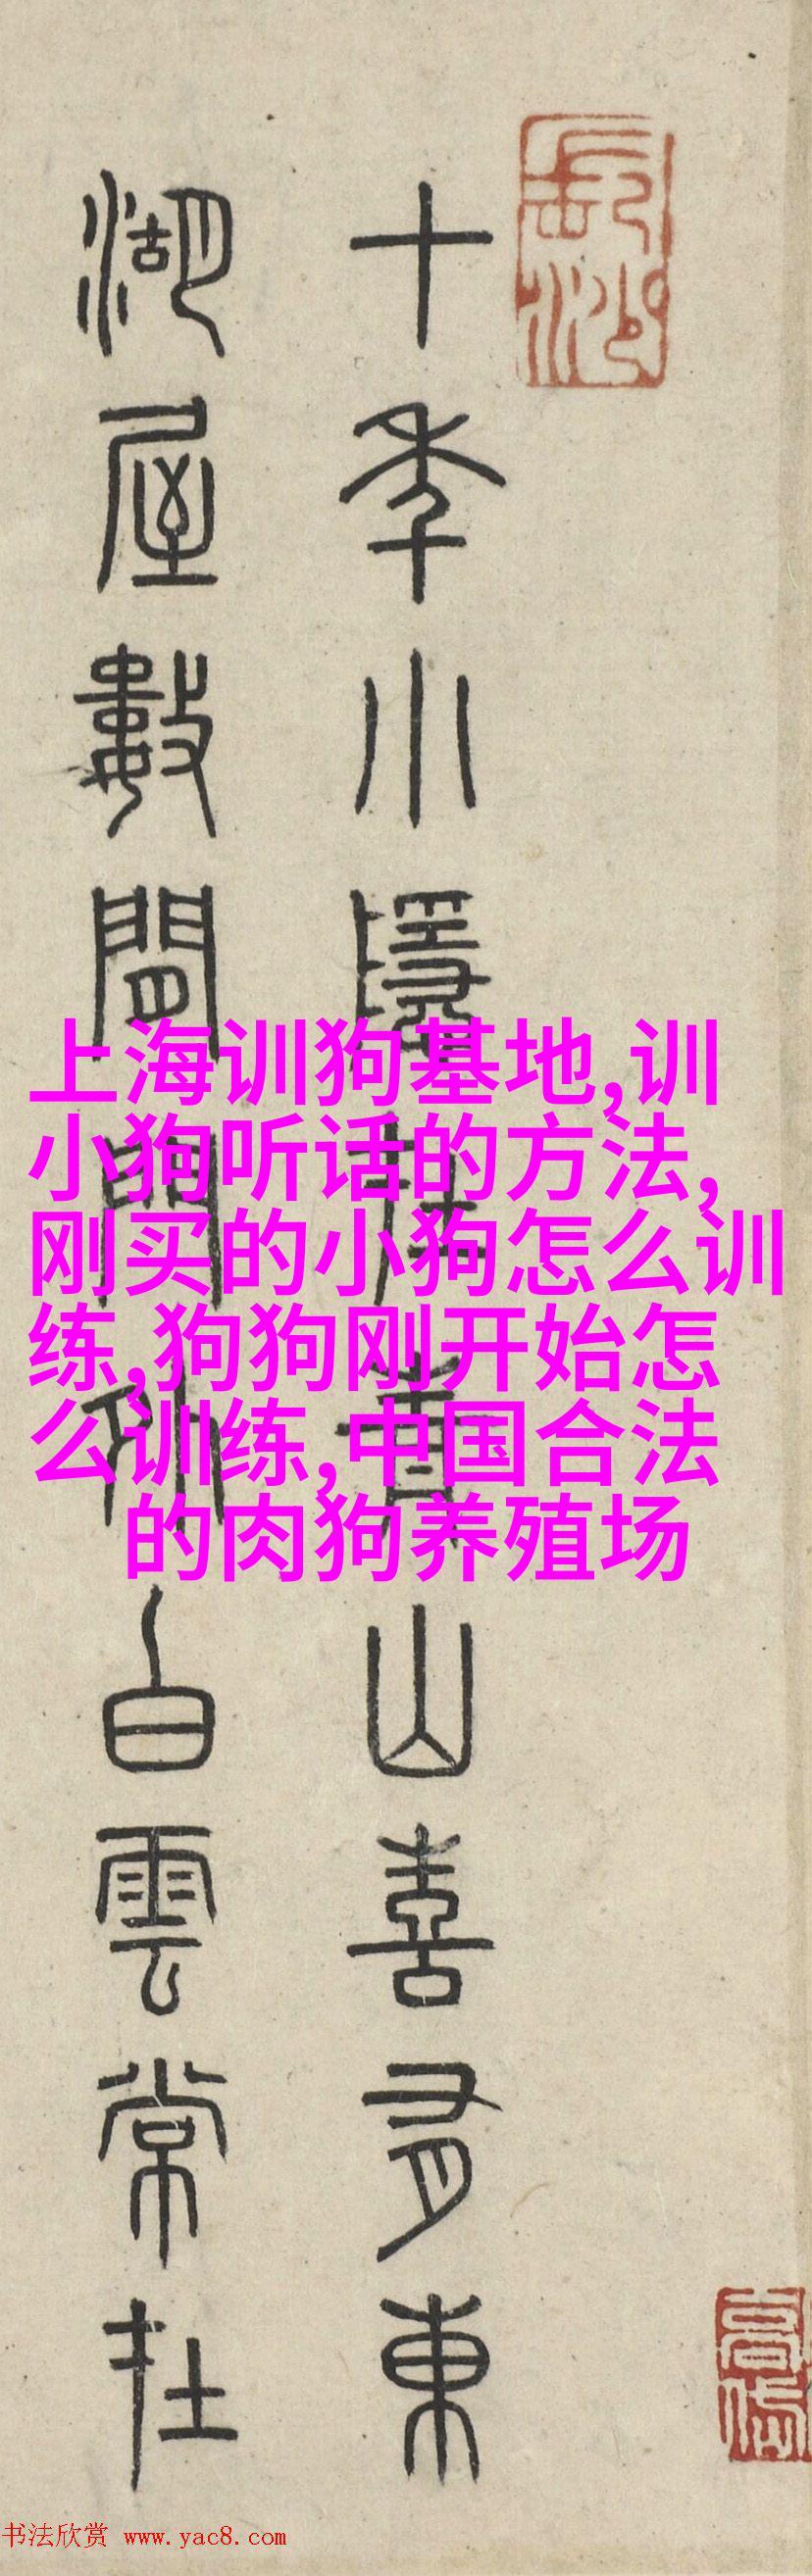 十年小隱在青山喜有東
湖屋數間門外白雲常在
上海训狗基地,训
小狗听话的方法,
刚买的小狗怎么训
练,狗狗刚开始怎
么训练,中国合法
的肉狗养殖场
书法欣赏 www.yac8.com